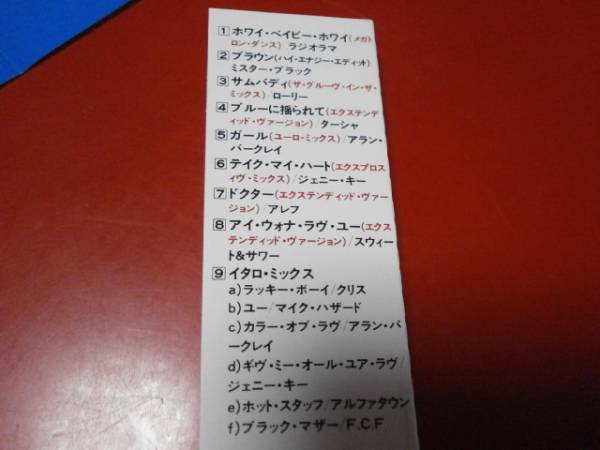 1 ホワイ・ベイビー・ホワイ(メガト
ロン・ダンス) ラジオラマ
2 ブラウン(ハイ・エナジー・エディット)
ミスター・ブラック
3 サムバディ(ザ・グルーヴ・イン・ザ・
ミックス)/ローリー
4 ブルーに揺られて(エクステンデ
ィッド・ヴァージョン)/ターシャ
5 ガール(ユーロ・ミックス)/アラン・
バークレイ
6 テイク・マイ・ハート(エクスプロス
ィヴ・ミックス)/ジェニー・キー
7 ドクター(エクステンディッド・ヴァー
ジョン)/アレフ
8 アイ・ウォナ・ラヴ・ユー(エクス
テンディッド・ヴァージョン)/スウィー
ト&サワー
9 イタロ・ミックス
a)ラッキー・ボーイ/クリス
b)ユー/マイク・ハザード
c)カラー・オブ・ラヴ/アラン・バ
ークレイ
d)ギヴ・ミー・オール・ユア・ラヴ/
ジェニー・キー
e)ホット・スタッフ/アルファタウン
f)ブラック・マザー/F.C.F